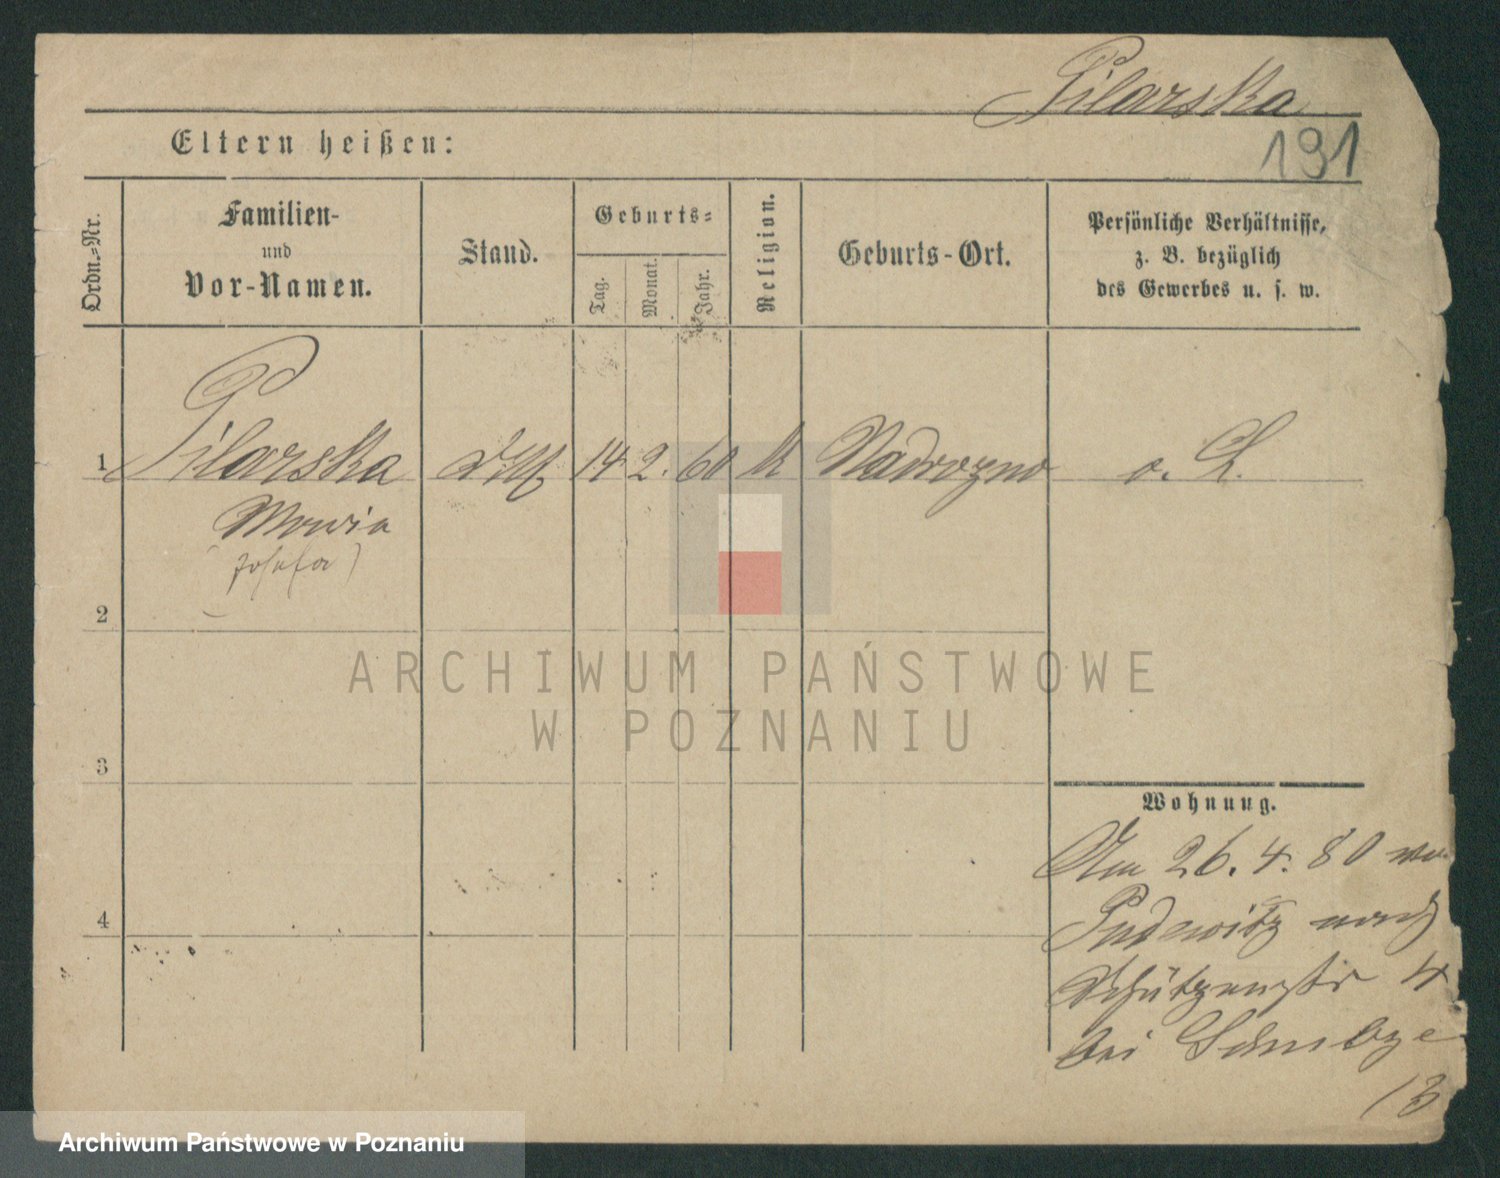 Pilarska
191
Eltern heißen:
Ordn.-Nr.
Familien-
und
Vor-Namen.
Stand.
Geburts-
Tag.
Monat.
Jahr.
Religion.
Geburts-Ort.
Persönliche Verhältnisse,
z. B. bezüglich
des Gewerbes u. s. w.
1 Pilarska 14 2. 60 K Nadrozno o. L.
Maria
(Josefa)
2
ARCHIWUM PAŃSTWOWE
W POZNANIU
3
Wohnung.
Am 26. 4. 80 von
4
Pudewitz nach
Schützenstr 4
bei
Archiwum Państwowe w Poznaniu